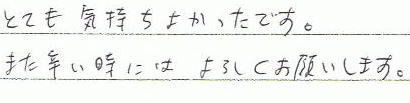 とても気持ちよかったです。
また辛い時には よろしくお願いします。